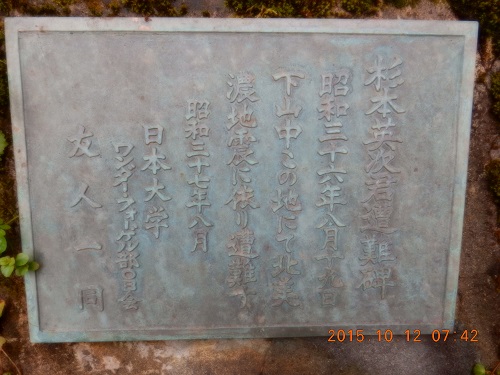 杉本英次君遭難碑
昭和三十六年八月十九日
下山中この地にて北美
濃地震に依り遭難す
昭和三十七年八月
日本大学
ワンダーフォーゲル部OB会
友人一同
2015 10 12 07:42